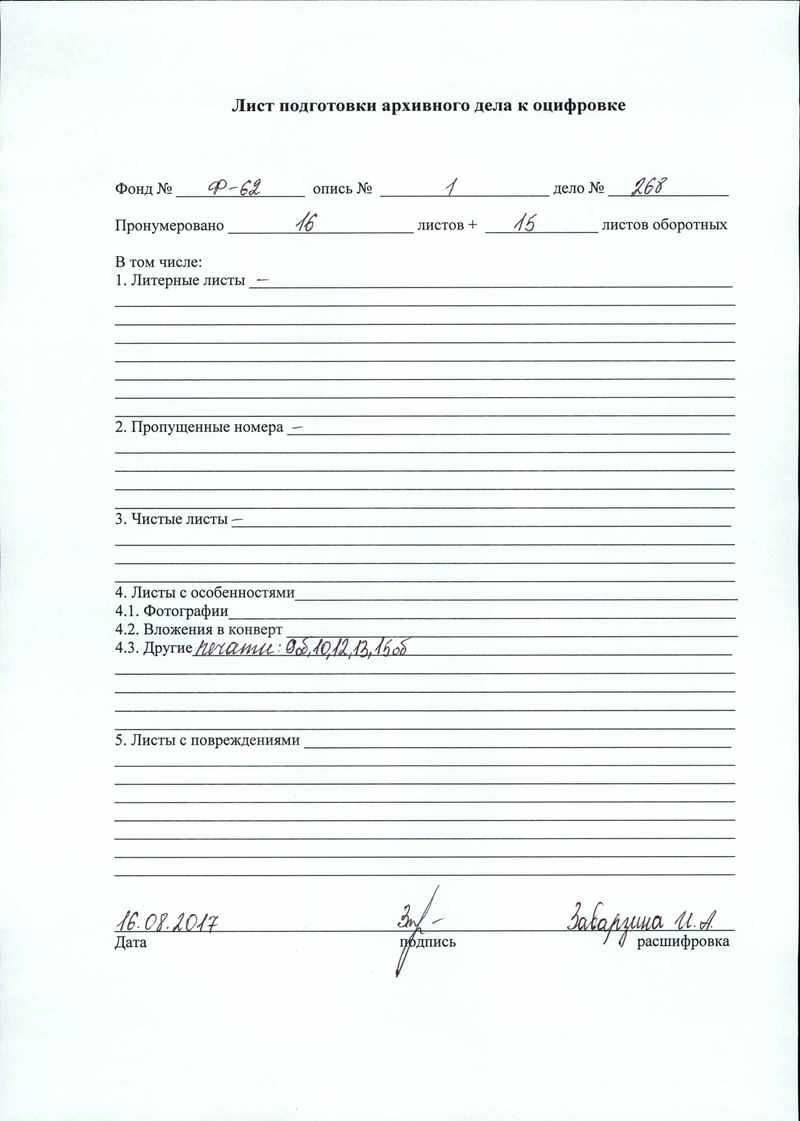 Лист подготовки архивного дела к оцифровке
Фонд № Ф-62 опись № 1 дело № 268
Пронумеровано 16 листов + 15 листов оборотных
В том числе:
1. Литерные листы —
2. Пропущенные номера —
3. Чистые листы —
4. Листы с особенностями
4.1. Фотографии
4.2. Вложения в конверт
4.3. Другие печати: 9об, 10, 12, 13, 15об
5. Листы с повреждениями
16.08.2017 Забарзина И.А.
Дата подпись расшифровка